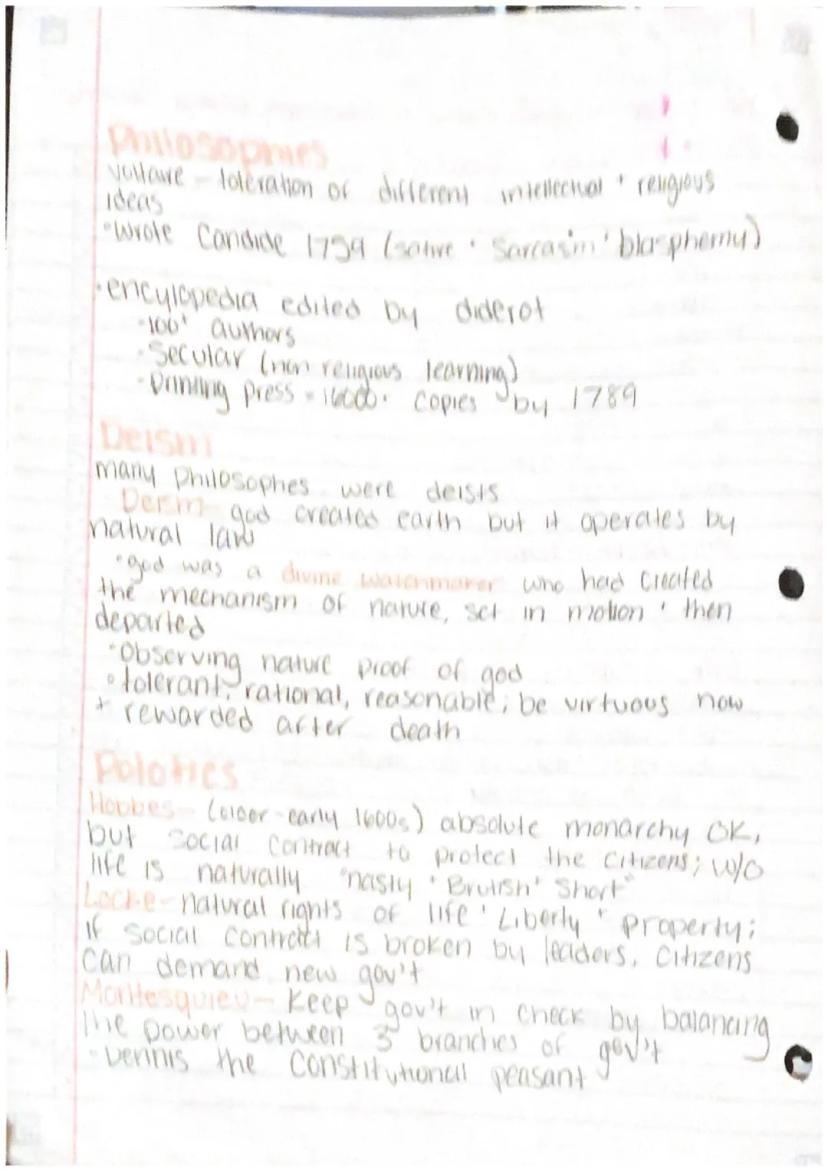 Philosophies
Voltaire - toleration of different intellectual + religious
ideas
•Wrote Candide 1759 (satire + sarcasim + blasphemy)
•encylopedia edited by diderot
•100+ authors
•Secular (non religious learning)
•Printing press = 16000+ copies by 1789
Deism
many philosophes were deists
Deism- god created earth but it operates by
natural law
•god was a divine watchmaker who had created
the mechanism of nature, set in motion + then
departed
•Observing nature proof of god
•tolerant, rational, reasonable; be virtuous now
+ rewarded after death
Polotics
Hobbes- (older-early 1600s) absolute monarchy OK,
but social contract to protect the citizens; w/o
life is naturally "nasty + Brutish + Short"
Locke- natural rights of life + Liberty + property;
if social contract is broken by leaders, citizens
can demand new gov't
Montesquieu- Keep gov't in check by balancing
the power between 3 branches of gov't
•Dennis the constitutional peasant